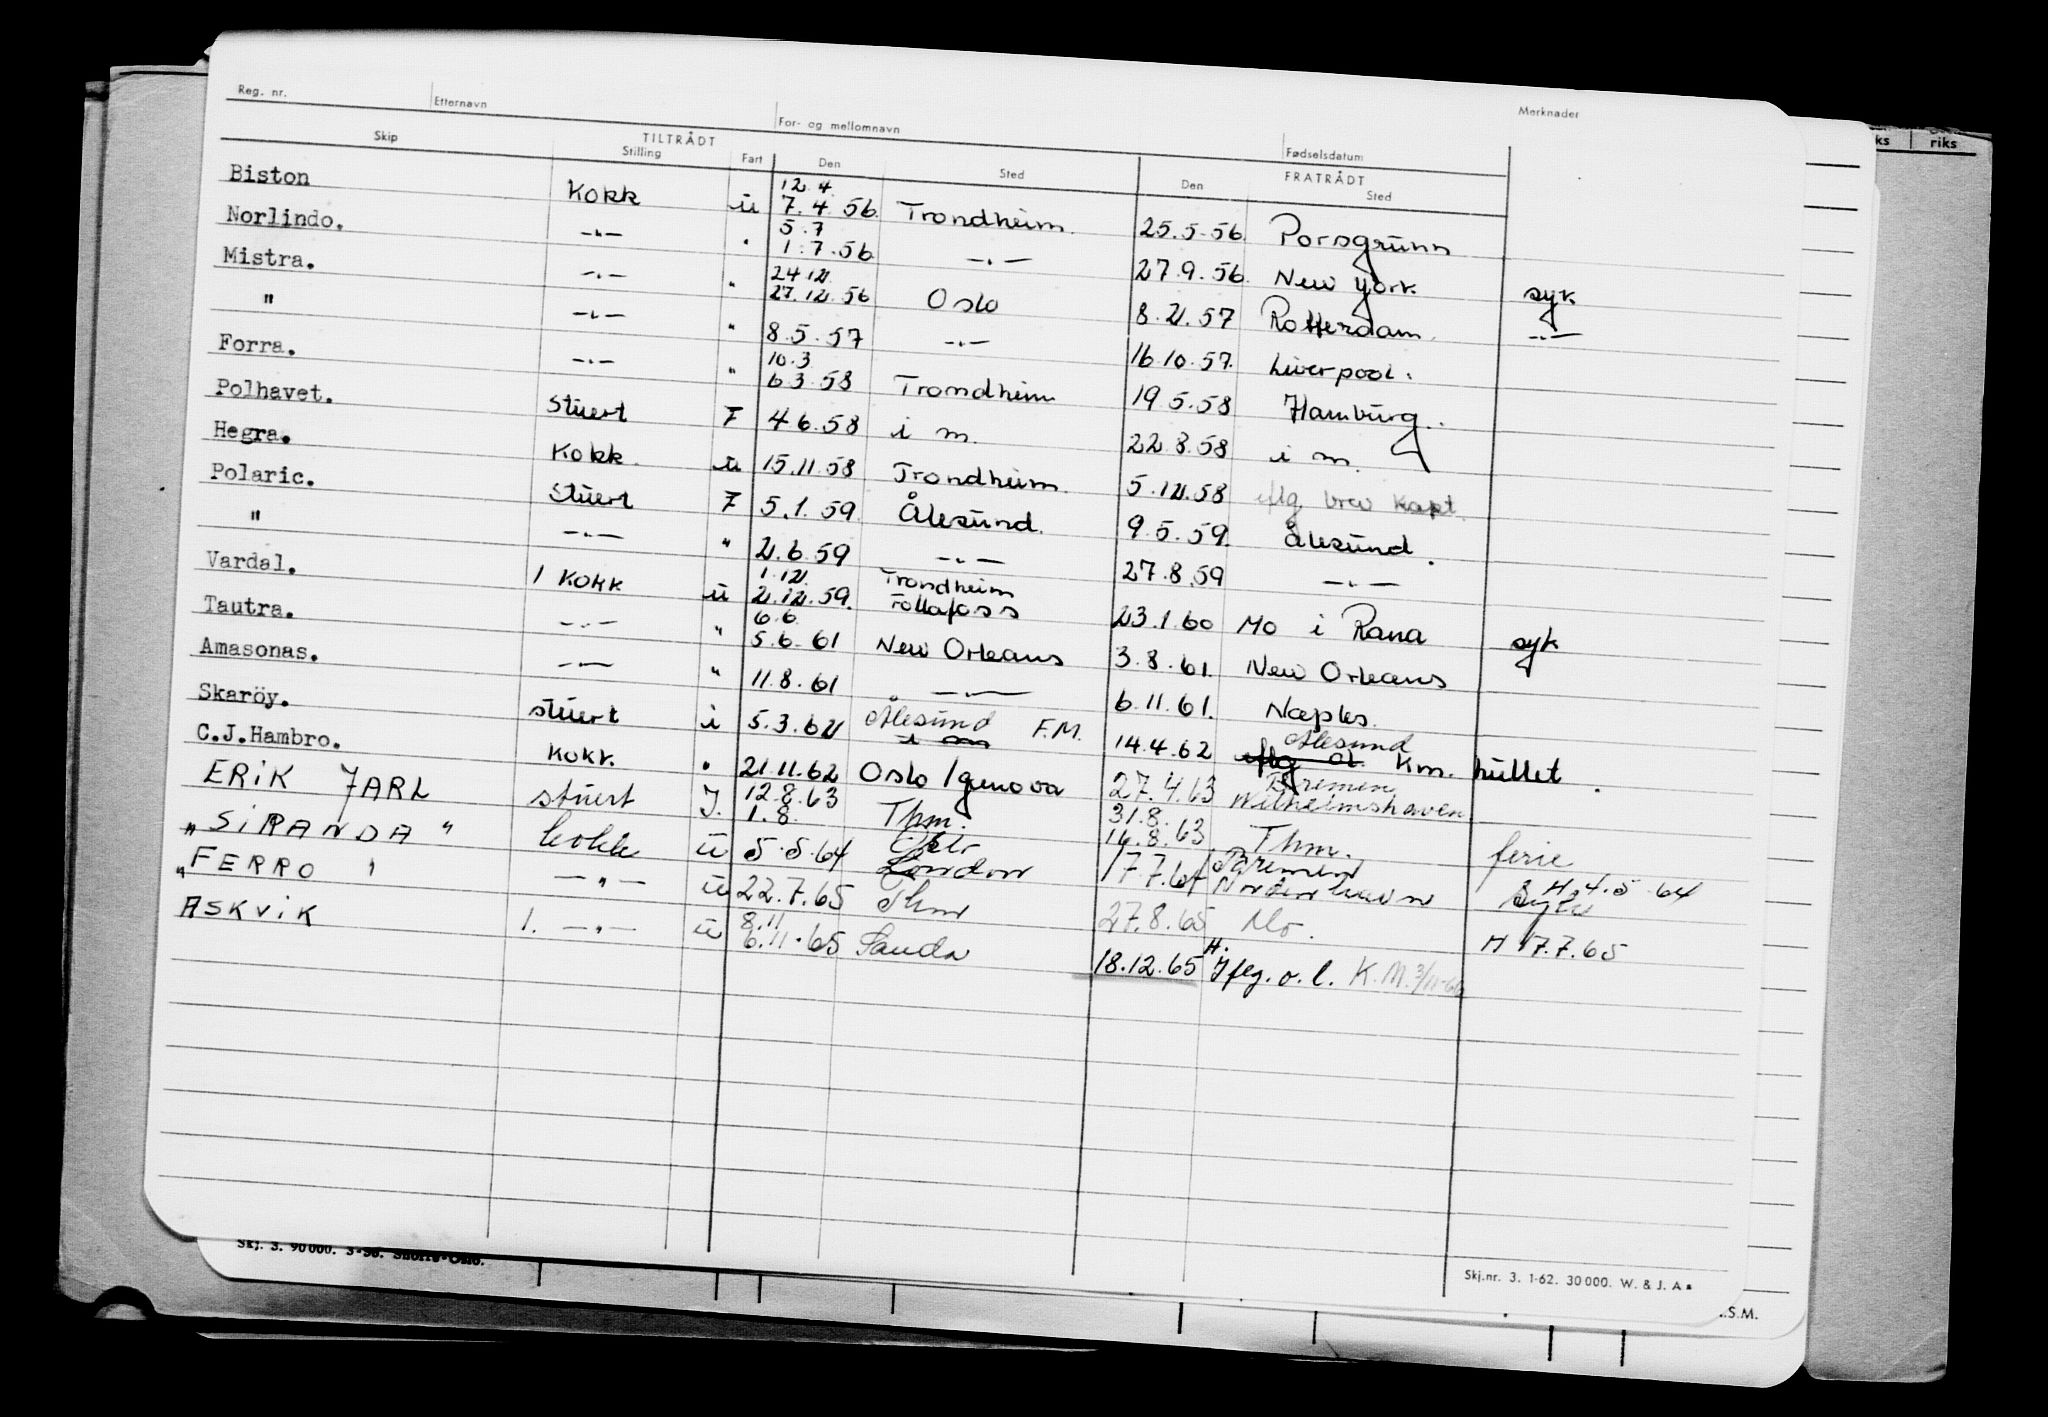 Reg. nr. Etternavn For- og mellomnavn Fødselsdatum Merknader
TILTRÅDT FRATRÅDT
Skip Stilling Fart Den Sted Den Sted
riks
Biston Kokk u 12.4. 7.4.56. Trondheim. 25.5.56. Porsgrunn
Norlindo. —"— " 5.7 1.7.56 —"— 27.9.56. New York syk
Mistra. —"— " 24.12. 27.12.56 Oslo 8.2.57 Rotterdam. —"—
" —"— " 8.5.57 —"— 16.10.57. Liverpool.
Forra. —"— " 10.3 6.3.58 Trondheim 19.5.58 Hamburg.
Polhavet. Stuert F 4.6.58 i m. 22.8.58 i m.
Hegra. Kokk. u 15.11.58 Trondheim. 5.12.58 iflg brev kapt.
Polaric. Stuert F 5.1.59. Ålesund. 9.5.59. Ålesund.
" —"— " 2.6.59 —"— 27.8.59 —"—
Vardal. 1 Kokk u 1.12. 2.12.59. Trondheim Follafoss 23.1.60 Mo i Rana syk
Tautra. —"— " 6.6. 5.6.61 New Orleans 3.8.61. New Orleans
Amasonas. —"— " 11.8.61 —"— 6.11.61. Naples.
Skaröy. stuert i 5.3.62 Ålesund i m F.M. 14.4.62 Ålesund iflg Km. hullet.
C.J.Hambro. Kokk. " 21.11.62 Oslo/Genova 27.4.63 Bremen Wilhelmshaven
ERIK JARL stuert J. 12.8.63 1.8. Thm. 31.8. 16.8.63 Thm. ferie
„SIRANDA" kokk u 5.5.64 London 17.7.64 Bremen Nordenhavn H 4.5.64
„FERRO" —"— u 22.7.65 Thm 27.8.65 Mo. H 17.7.65
ASKVIK 1. —"— u 8.11 6.11.65 Sauda 18.12.65 H. Iflg. o.l. K.M. 3/11-66
Skj. 3. 90000. 3-56.
Skj.nr. 3. 1-62. 30000. W. & J. A
S.M.